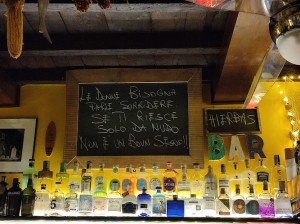 LE DONNE BISOGNA
FARLE SORRIDERE
SE TI RIESCE
SOLO DA NUDO
NON È UN BUON SEGNO!!
HIERBAS
BAR